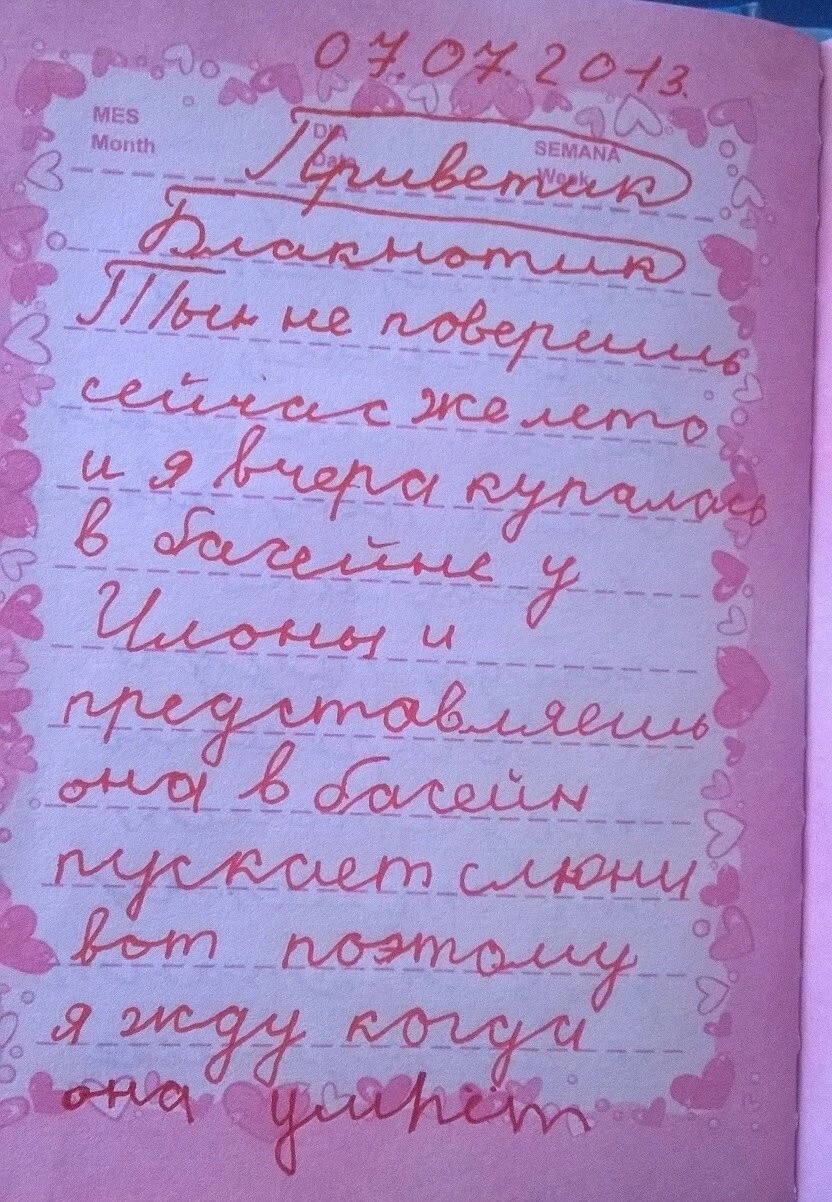 07.07.2013.
MES
Month
DIA
Date
SEMANA
Week
Приветик
Блакнотик
Ты не поверишь
сейчас же лето
и я вчера купалась
в басейне у
Илоны и
представляешь
она в басейн
пускает слюни
вот поэтому
я жду когда
она умрёт